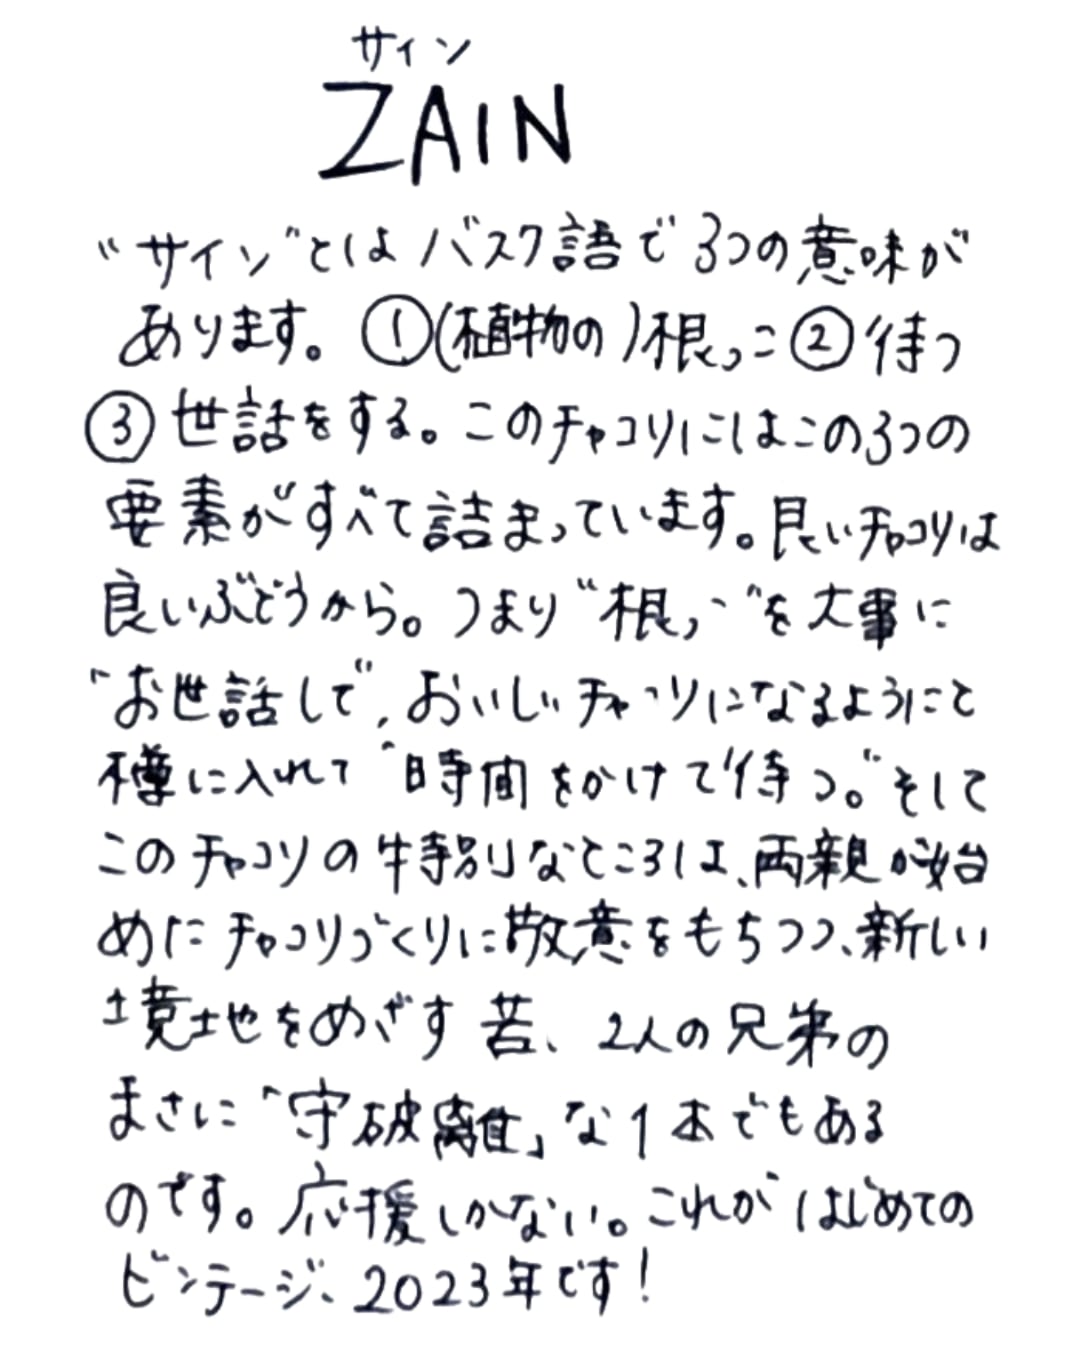 サイン
ZAIN
“サイン”とはバスク語で3つの意味が
あります。①(植物の)根っこ②待つ
③世話をする。このチャコリにはこの3つの
要素がすべて詰まっています。良いチャコリは
良いぶどうから。つまり“根っこ”を大事に
“お世話して”,おいしいチャコリになるようにと
樽に入れて“時間をかけて待つ。”そして
このチャコリの特別なところは、両親が始
めたチャコリづくりに敬意をもちつつ、新しい
境地をめざす若、2人の兄弟の
まさに「守破離」な1本でもある
のです。応援しかない。これがはじめての
ビンテージ、2023年です!